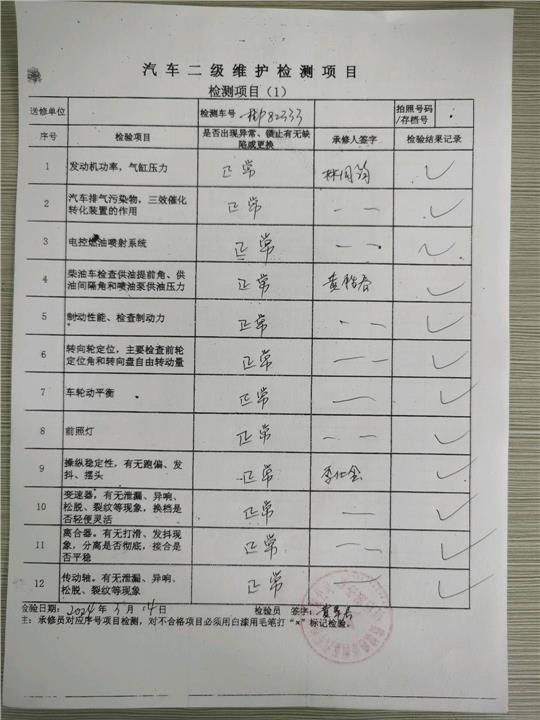 汽车二级维护检测项目
检测项目（1）
送修单位 检测车号 拍照号码/存档号
序号 检验项目 是否出现异常、锁止有无缺陷或更换 承修人签字 检验结果记录
1 发动机功率，气缸压力 正常 ✓
2 汽车排气污染物，三效催化转化装置的作用 正常 — — ✓
3 电控燃油喷射系统 正常 — — ✓
4 柴油车检查供油提前角、供油间隔角和喷油泵供油压力 正常 ✓
5 制动性能、检查制动力 正常 — — ✓
6 转向轮定位，主要检查前轮定位角和转向盘自由转动量 正常 — — ✓
7 车轮动平衡 正常 — ✓
8 前照灯 正常 — — ✓
9 操纵稳定性，有无跑偏、发抖、摆头 正常 ✓
10 变速器，有无泄漏、异响、松脱、裂纹等现象，换档是否轻便灵活 正常 — ✓
11 离合器。有无打滑、发抖现象，分离是否彻底，接合是否平稳 正常 — — ✓
12 传动轴。有无泄漏、异响、松脱、裂纹等现象 正常 — ✓
检验日期：2024年3月14日 检验员 签字：
主：承修员对应序号项目检测，对不合格项目必须用白漆用毛笔打“×”标记检验。